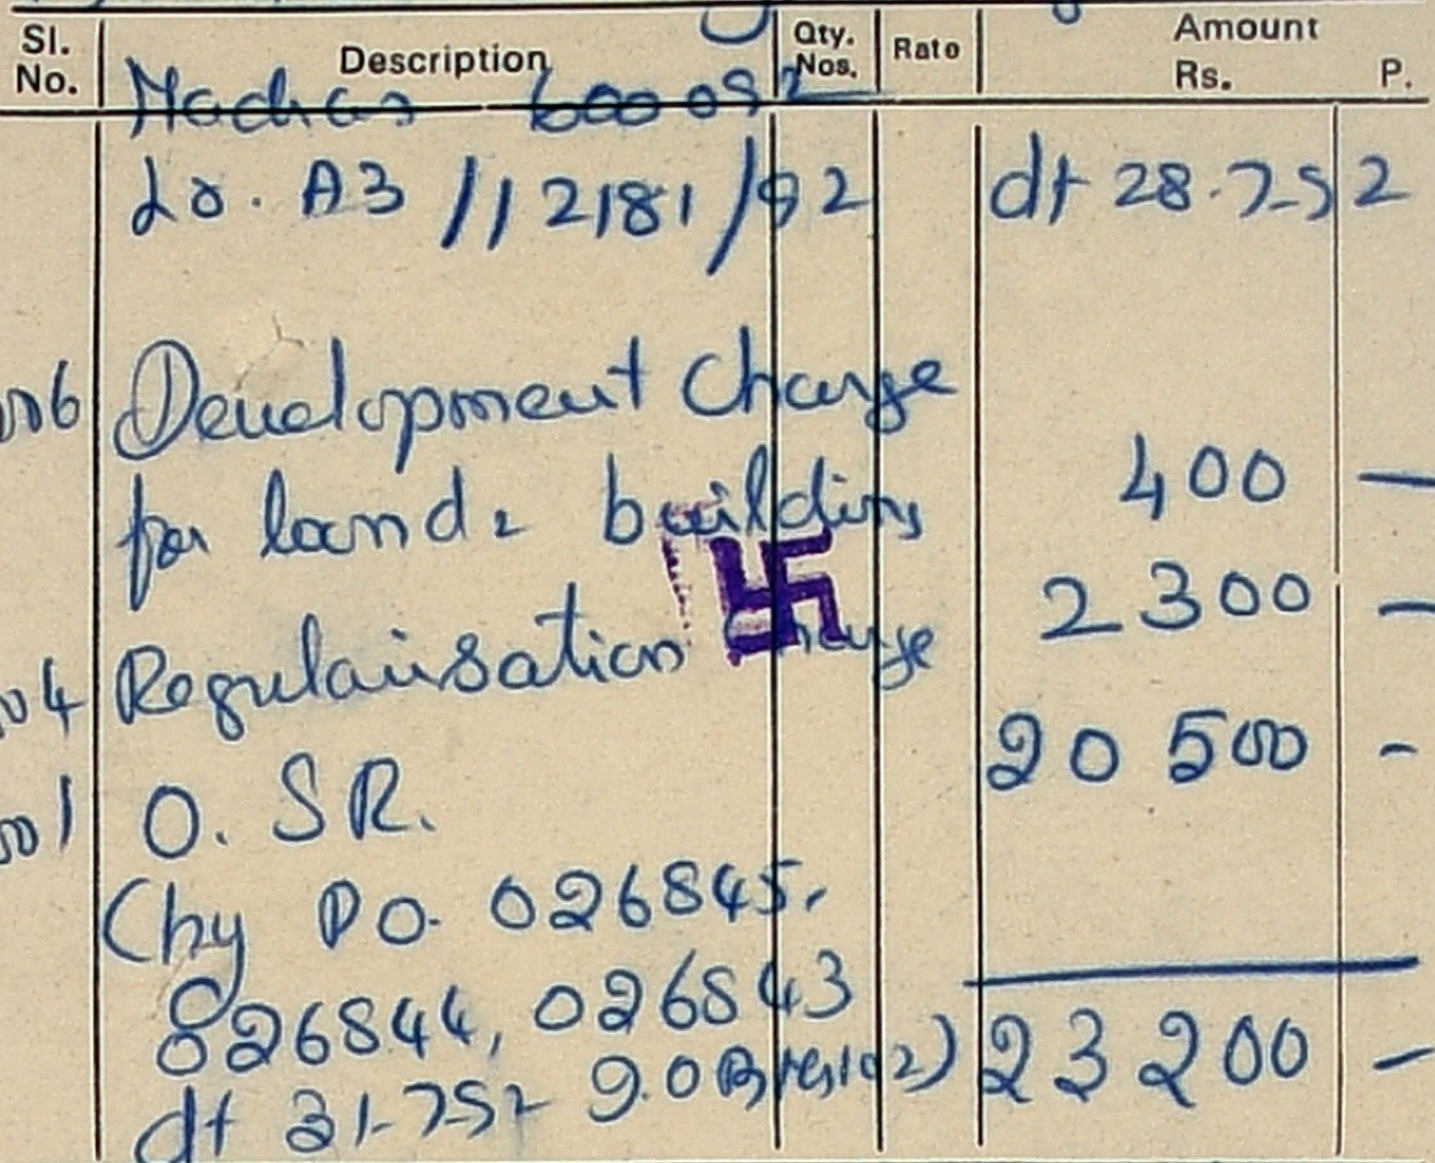 Sl. No. Description Qty. Nos. Rate Amount Rs. P.
Madras 600 092
Lr. A3 / 12181 / 92 dt 28.7.92
006 Development Charge
for land & building 400 —
2300 —
04 Regularisation Charge
20500 -
001 O. S R.
Chy P O. 026845,
026844, 026843
23200 -
dt 31-7-92